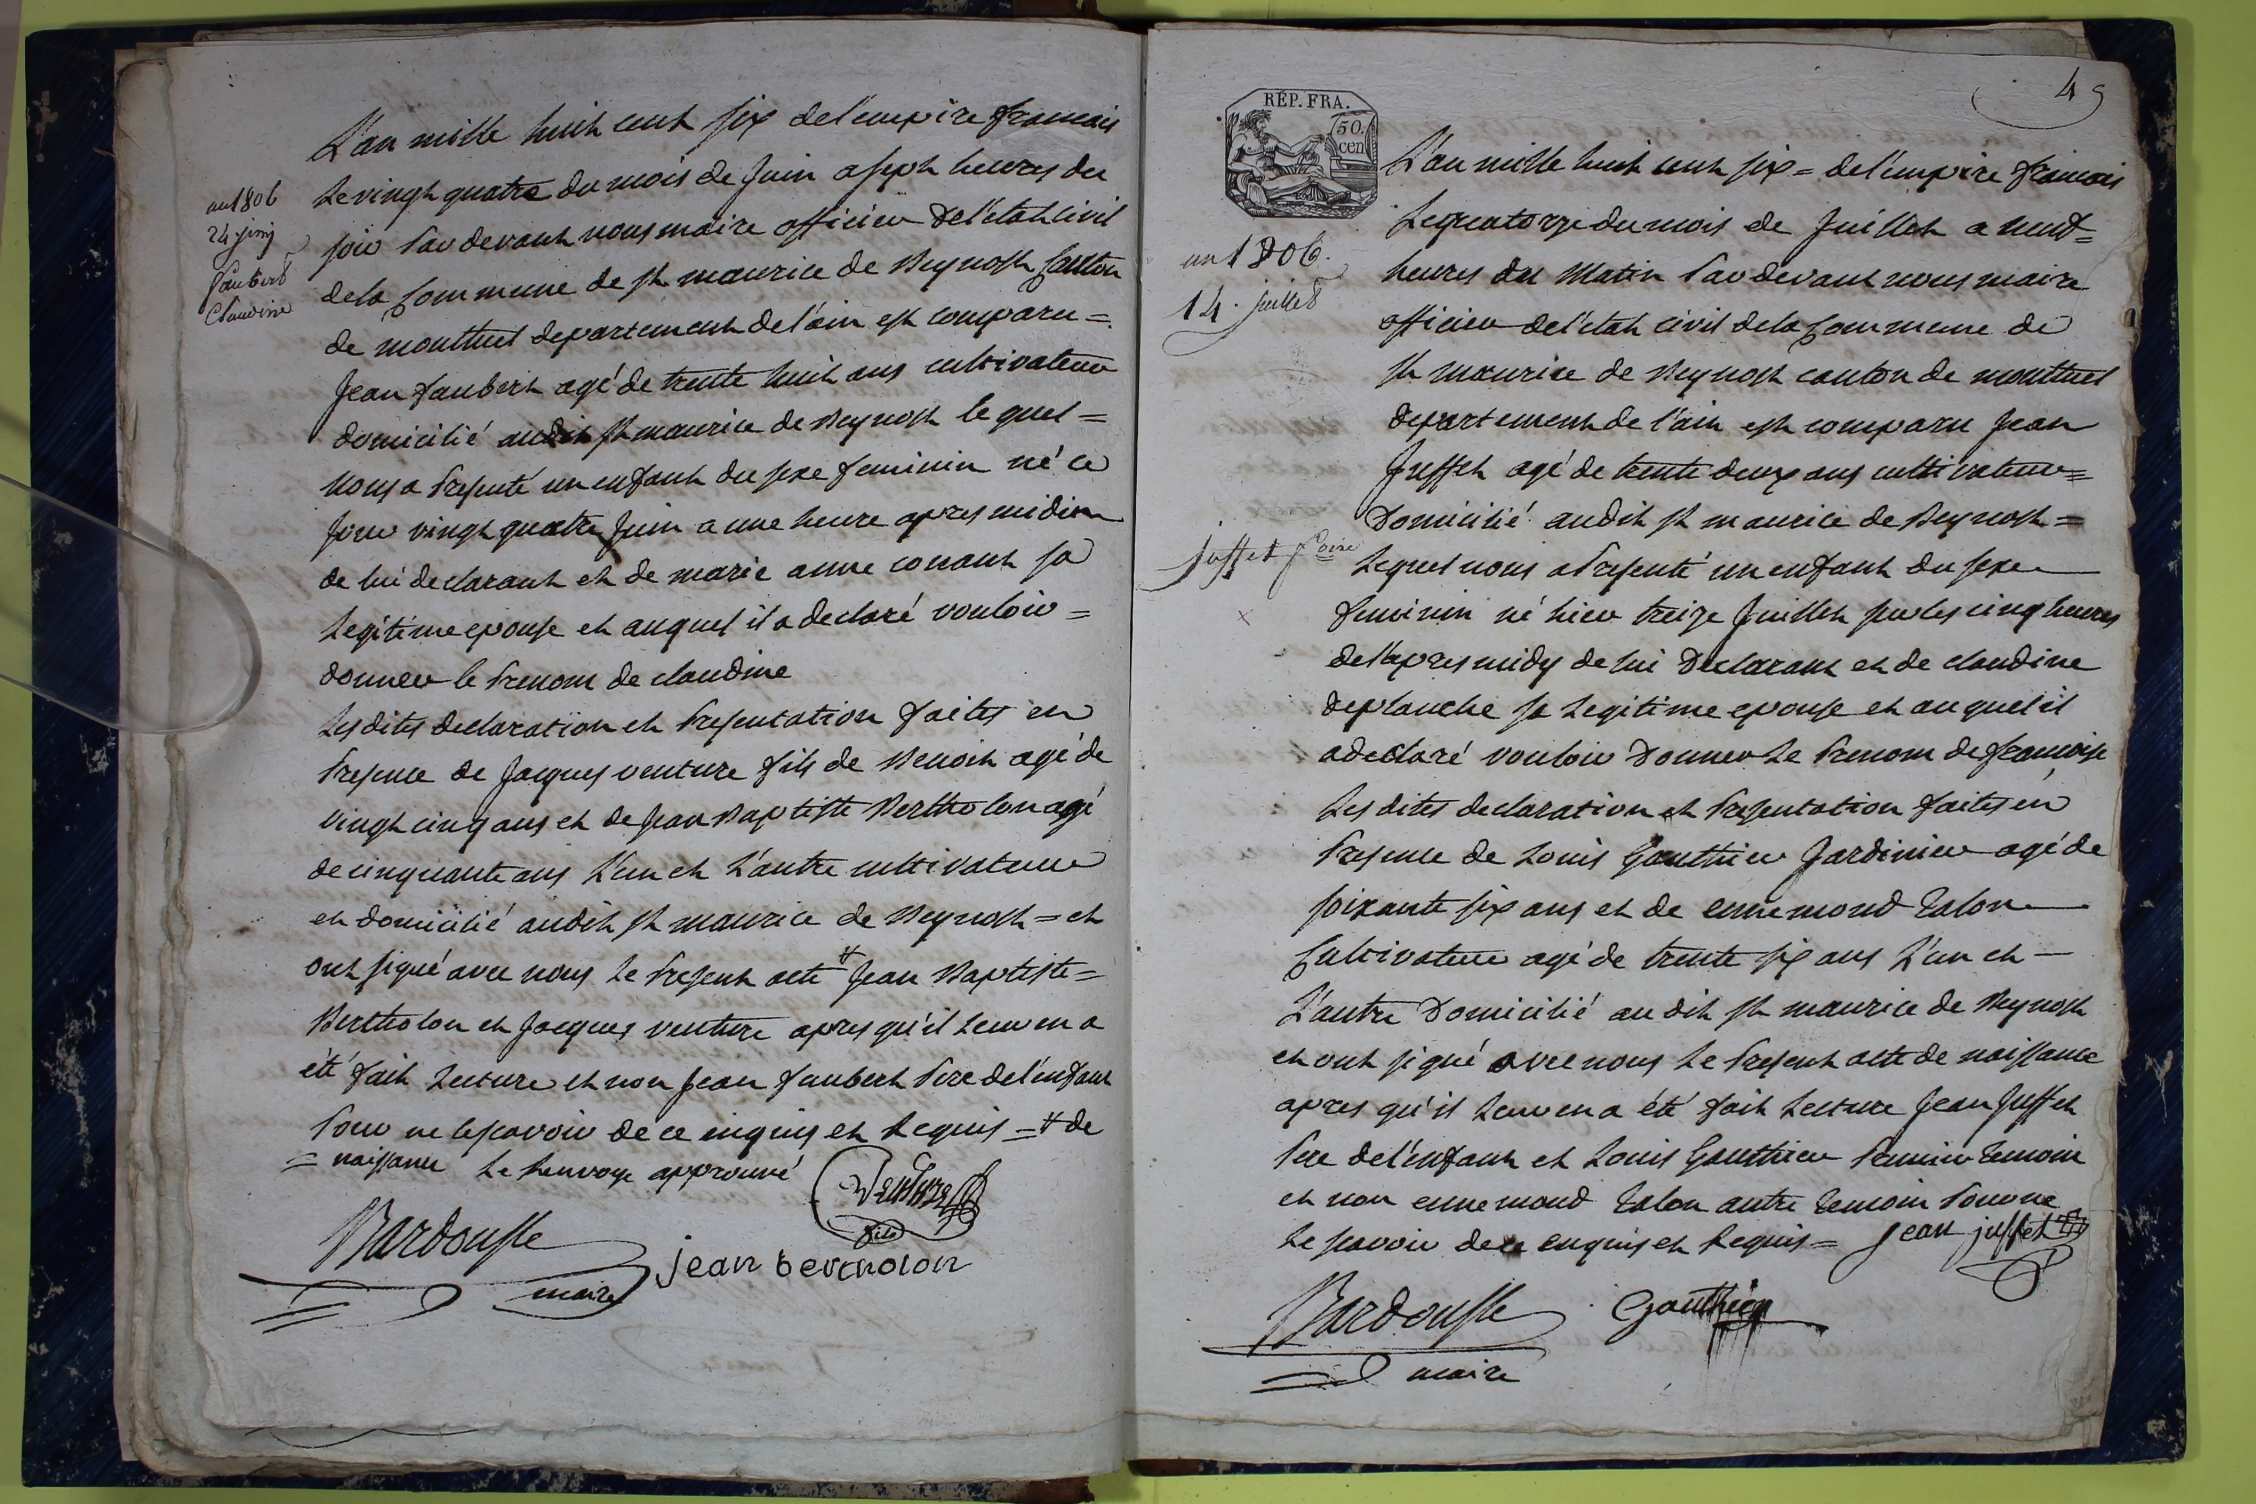 L'an mille huit cent six de l'empire francais
Le vingt quatre du mois de Juin a sept heures du
soir Par devant nous maire officier de l'état civil
de la Commune de St maurice de Beynost Canton
de montluel departement de l'ain est comparu =
Jean faubert agé de trente huit ans cultivateur
domicilié audit St maurice de Beynost le quel =
nous a Presenté un enfant du sexe feminin né ce
Jour vingt quatre Juin a une heure apres midi
de lui declarant et de marie anne conant sa
Legitime epouse et auquel il a declaré vouloir =
donner le Prenom de claudine
Les dites declaration et Presentation faites en
Presence de Jacques venture fils de Benoit agé de
vingt cinq ans et de Jean Baptiste Bertholon agé
de cinquante ans L'un et L'autre cultivateur
et domicilié audit St maurice de Beynost = et
ont signé avec nous Le Present acte # Jean Baptiste =
Bertholon et Jacques venture apres qu'il Leur en a
été fait Lecture et non Jean faubert Pere de l'enfant
Pour ne le scavoir de ce enquis et Requis = # de
= naissance Le Renvoye approuvé
Venture
fils
Bardousse
maire
jean bertholon
an 1806
24 juin
faubert
Claudine
49
RÉP. FRA.
50.
cen
L'an mille huit cent six = de l'empire francais
Le quatorze du mois de Juillet a neuf =
heures du Matin Par devant nous maire
officier de l'etat civil de la Commune de
St maurice de Beynost canton de montluel
departement de l'ain est comparu Jean
Juffet agé de trente deux ans cultivateur =
Domicilié audit St maurice de Beynost =
Lequel nous a Presenté un enfant du sexe
feminin né hier treize Juillet sur les cinq heures
de l'apres midy de lui Declarant et de claudine
deplanche sa Legitime epouse et auquel il
a declaré vouloir Donner Le Prenom de francoise
Les dites declaration et Presentation faites en
Presence de Louis Gauthier Jardinier agé de
soixante six ans et de ennemond Talon
Cultivateur agé de trente six ans L'un et —
L'autre Domicilié audit St maurice de Beynost
et ont signé avec nous Le Present acte de naissance
apres qu'il Leur en a été fait Lecture Jean Juffet
Pere de l'enfant et Louis Gauthier Premier Temoin
et non ennemond Talon autre Temoin Pour ne
Le scavoir de ce enquis et Requis =
Jean juffet
Bardousse
maire
Gauthier
an 1806.
14. juillet
Juffet f.coise